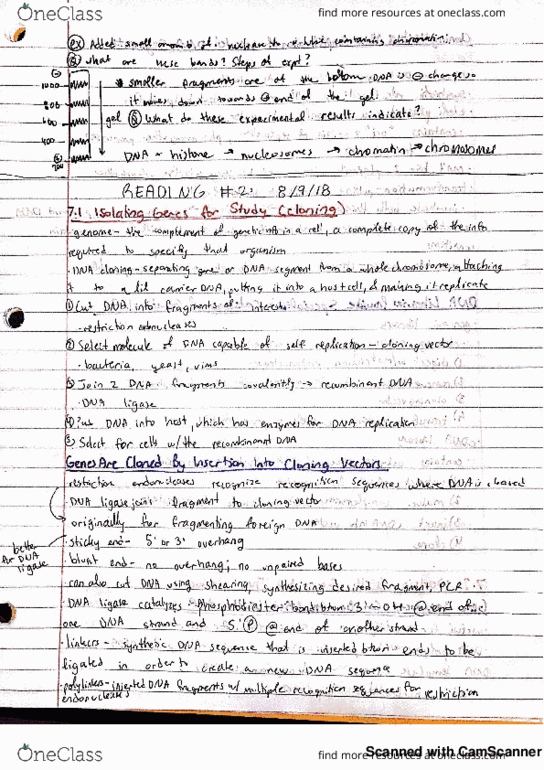 OneClass
find more resources at oneclass.com
(ex) Added small amounts of nuclease to containing chromatin.
(Q) what are these bands? Steps of exp?
1000 * smaller fragments are at the bottom. DNA is ⊖ charge so
800 it moves down towards ⊕ end of the gel.
600 gel (Q) What do these experimental results indicate?
400
200 DNA → histone → nucleosomes → chromatin → chromosomes
READING #2: 8/9/18
7.1 Isolating Genes for Study (cloning)
·genome- the complement of genetic info in a cell, a complete copy of the info
required to specify that organism
·DNA cloning- separating gene or DNA segment from a whole chromosome, attaching
it to a lil carrier DNA, putting it into a host cell, & making it replicate
① Cut DNA into fragments of interest
·restriction endonucleases
② Select molecule of DNA capable of self replication - cloning vector
·bacteria, yeast, virus
③ Join 2 DNA fragments covalently → recombinant DNA
·DNA ligase
④ Put DNA into host, which has enzymes for DNA replication
⑤ Select for cells w/ the recombinant DNA
Genes Are Cloned By Insertion Into Cloning Vectors
·restriction endonucleases recognize recognition sequences where DNA is cleaved
DNA ligase joins fragment to cloning vector
originally for fragmenting foreign DNA
·sticky end- 5' or 3' overhang
better for DNA ligase
·blunt end- no overhang; no unpaired bases
·can also cut DNA using shearing, synthesizing desired fragment, PCR
·DNA ligase catalyzes phosphodiester bond btwn 3'-OH @ end of
one DNA strand and 5' Ⓟ @ end of another strand
·linkers- synthetic DNA sequence that is inserted btwn ends to be
ligated in order to create a new DNA sequence
·polylinkers- inserted DNA fragments w/ multiple recognition sequences for restriction
endonucleases
OneClass
find more resources at oneclass.com
Scanned with CamScanner